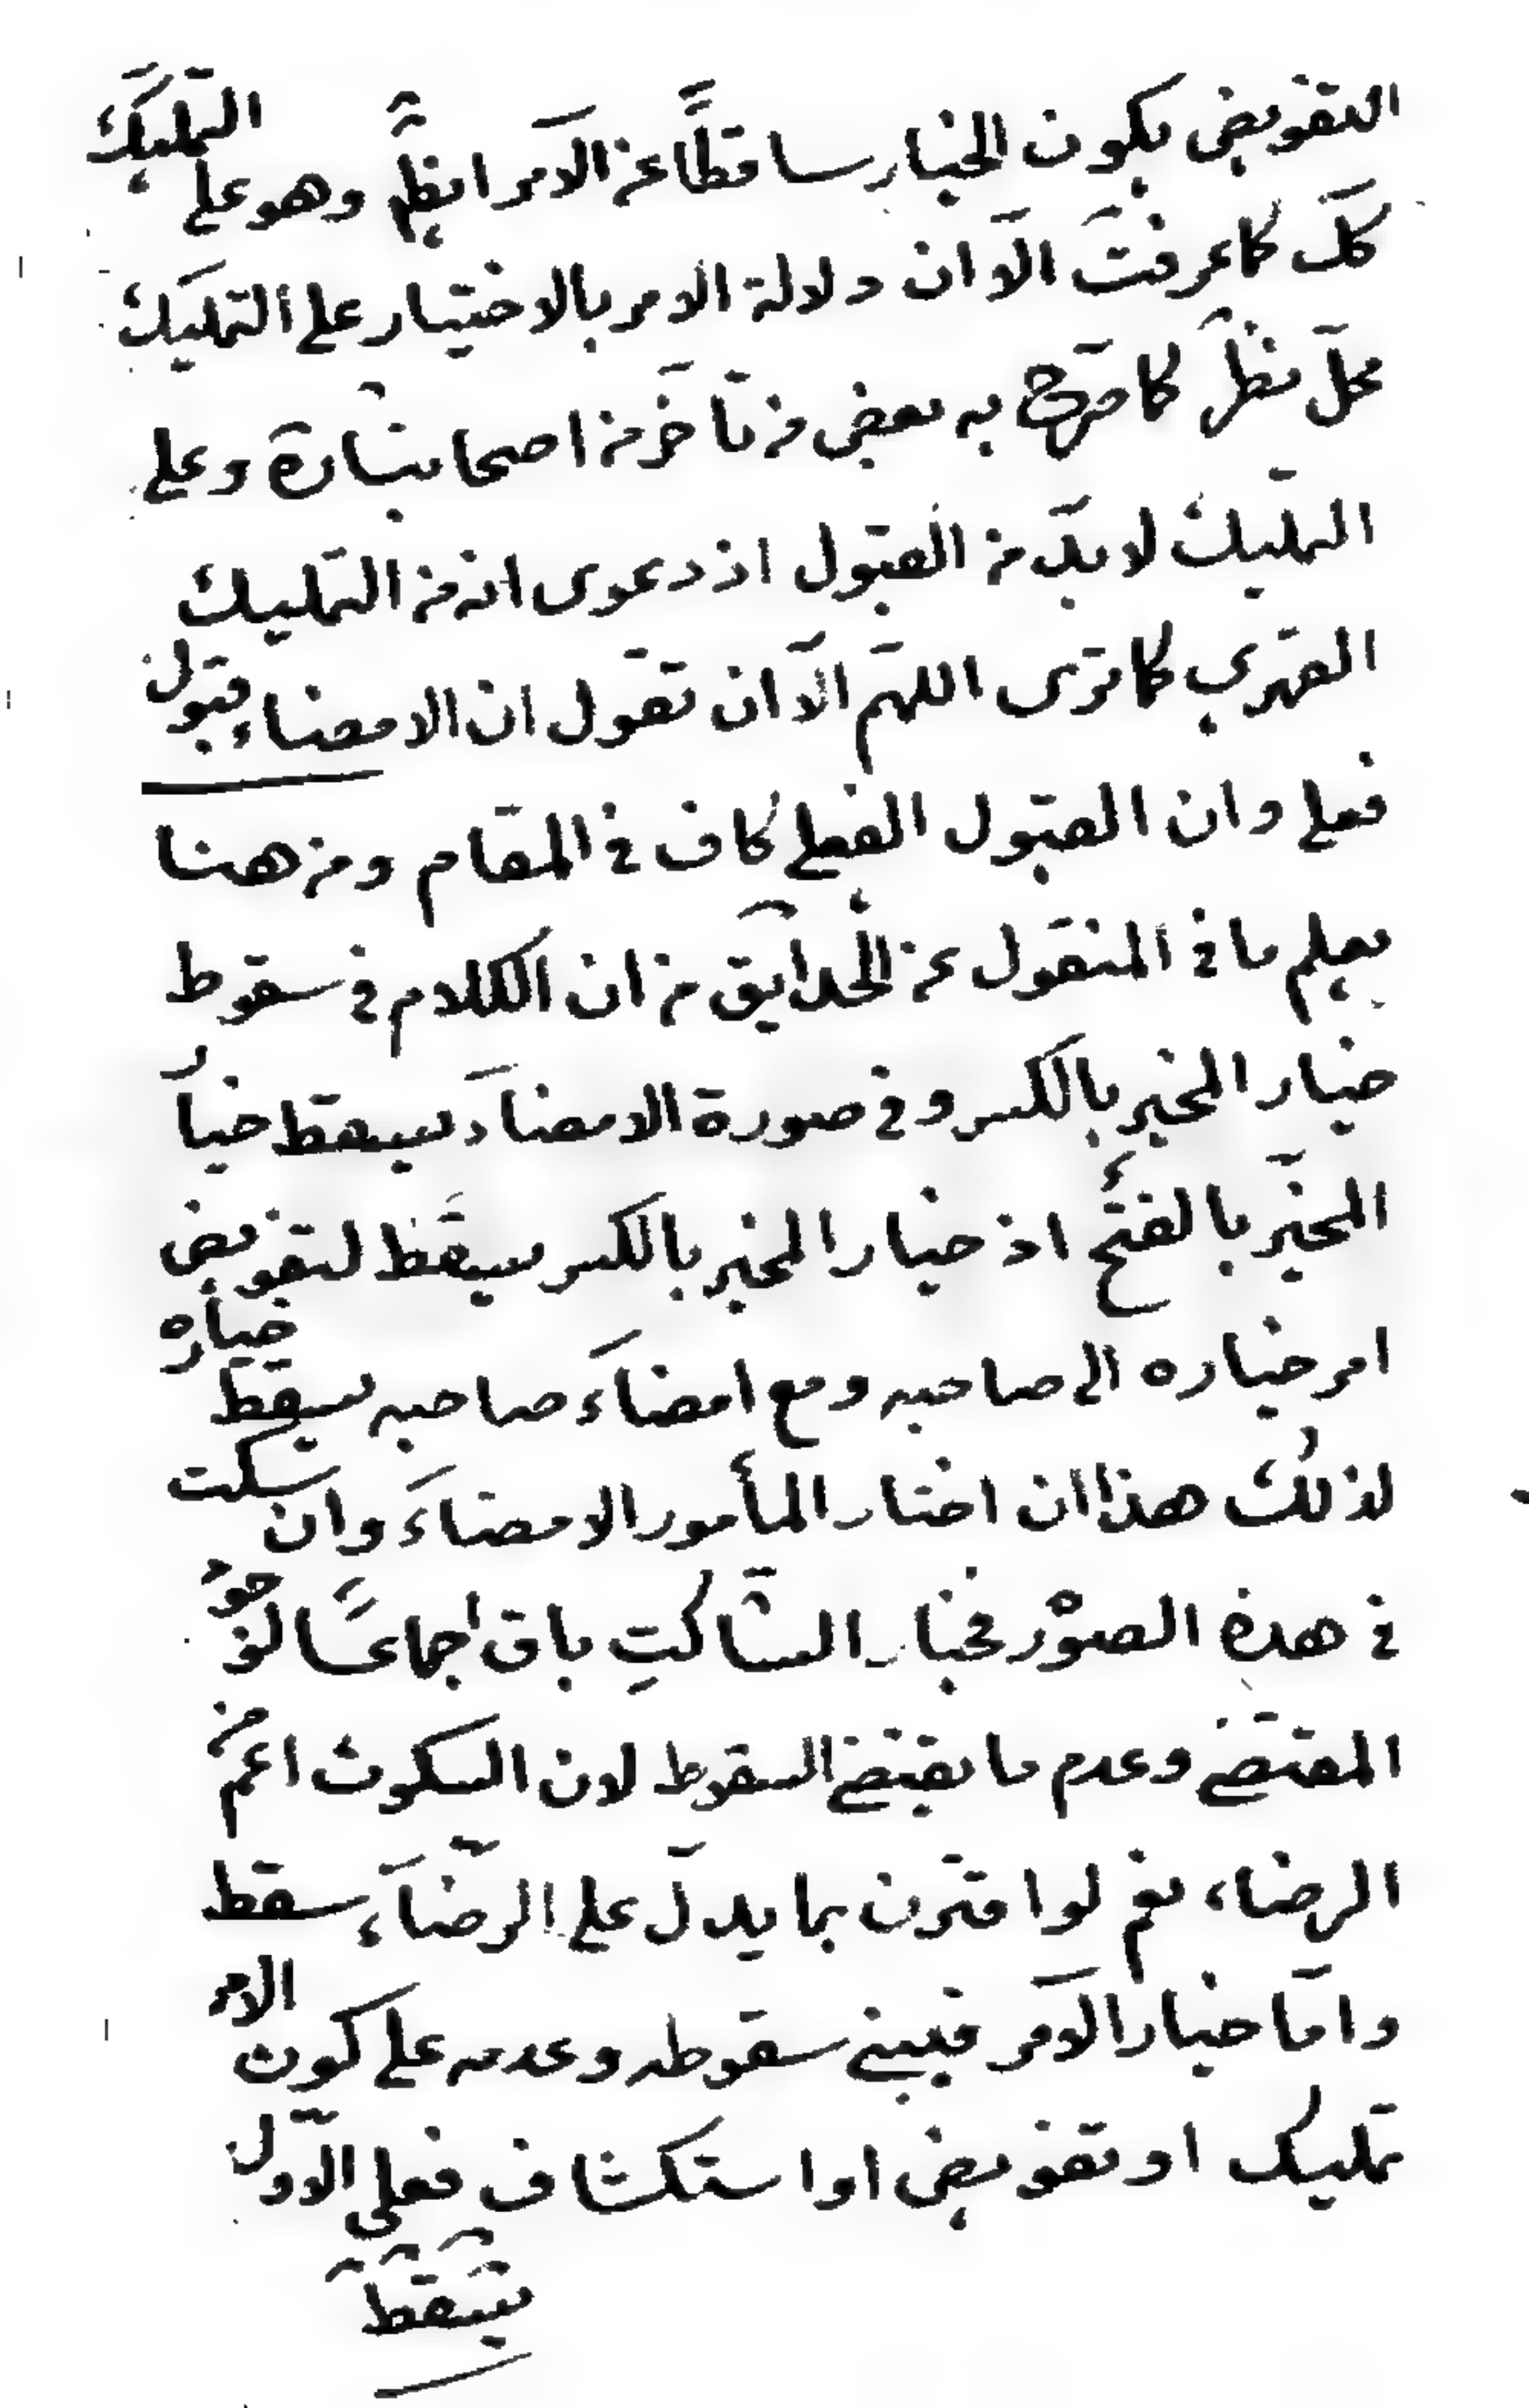 التفويض يكون الخيار ساقطًا عن الآمر ايضًا وهو على التمليك
كك كما عرفت الّا ان دلالة الامر بالاختيار على التمليك
محلّ نظر كما صرح به بعض من تأخّر من اصحابنا ره وعلى
التمليك لا بدّ من القبول اذ دعوى انه من التمليك
القهري كما ترى اللهمّ الّا ان تقول ان الامضاء قبول
فعلي وان القبول الفعلي كاف في المقام ومن هنا
يعلم ما في المنقول عن الحدايق من ان الكلام في سقوط
خيار المخير بالكسر وفي صورة الامضاء يسقط خيار
المخيّر بالفتح اذ خيار المخير بالكسر سيقط لتفويض
امر خياره الى صاحبه ومع امضاء صاحبه يسقط خياره
لذلك هذا ان اختار المأمور الامضاء وان سكت
في هذه الصور فخيار السّاكت باق اجماعًا لوجود
المقتضي وعدم ما يقتضي السقوط لان السكوت اعمّ من
الرضاء نعم لو اقترن بما يدلّ على الرّضاء سقط
وامّا خيار الآمر فيبنى سقوطه وعدمه على كون الامر
تمليك او تفويض او استكشاف فعلى الاوّل
يسقط